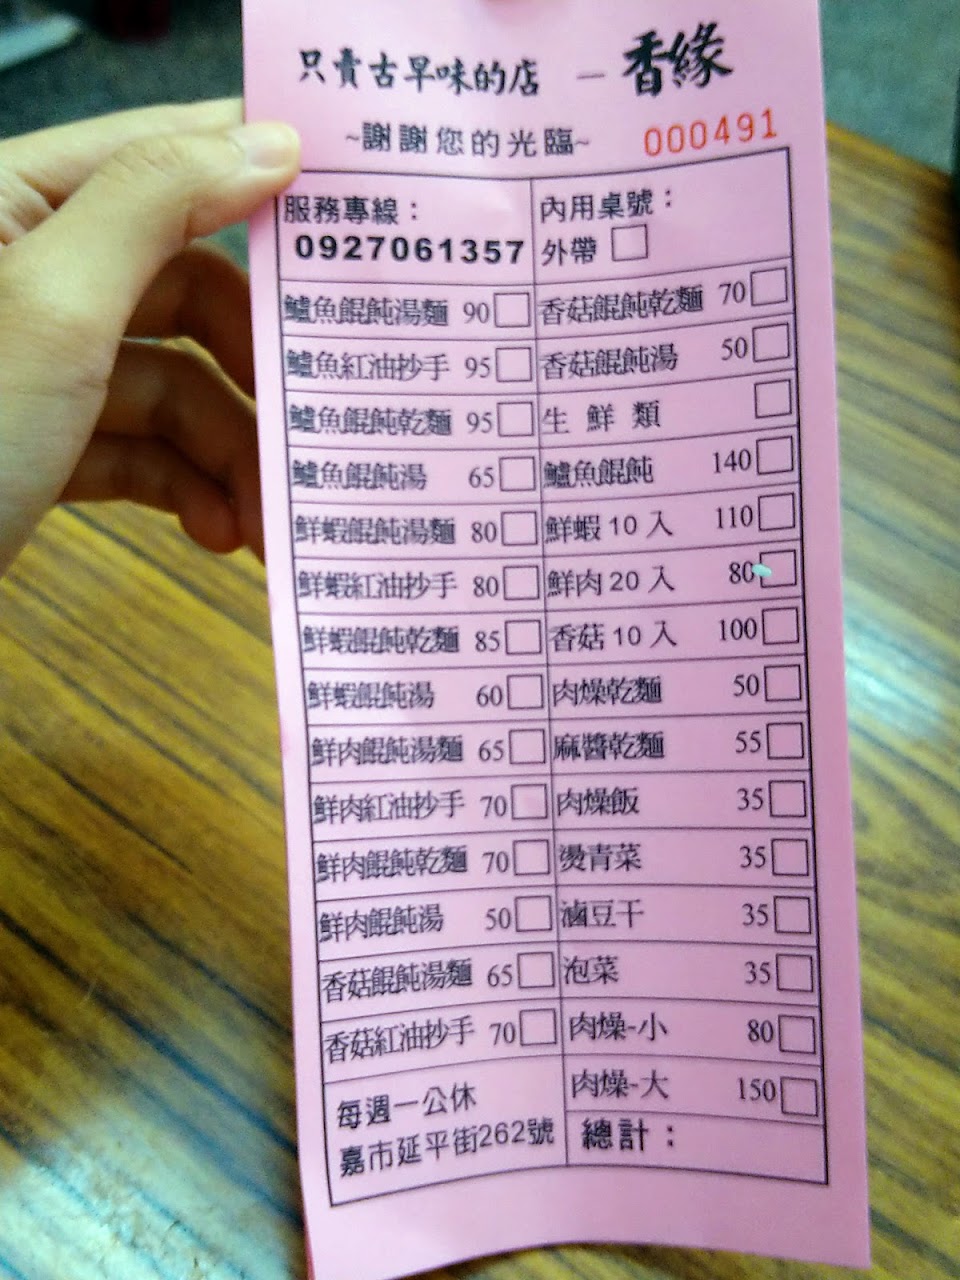 只賣古早味的店 — 香緣
~謝謝您的光臨~ 000491
服務專線：
0927061357
內用桌號：
外帶
鱸魚餛飩湯麵 90
鱸魚紅油抄手 95
鱸魚餛飩乾麵 95
鱸魚餛飩湯 65
鮮蝦餛飩湯麵 80
鮮蝦紅油抄手 80
鮮蝦餛飩乾麵 85
鮮蝦餛飩湯 60
鮮肉餛飩湯麵 65
鮮肉紅油抄手 70
鮮肉餛飩乾麵 70
鮮肉餛飩湯 50
香菇餛飩湯麵 65
香菇紅油抄手 70
每週一公休
嘉市延平街262號
香菇餛飩乾麵 70
香菇餛飩湯 50
生鮮類
鱸魚餛飩 140
鮮蝦10入 110
鮮肉20入 80
香菇10入 100
肉燥乾麵 50
麻醬乾麵 55
肉燥飯 35
燙青菜 35
滷豆干 35
泡菜 35
肉燥-小 80
肉燥-大 150
總計：